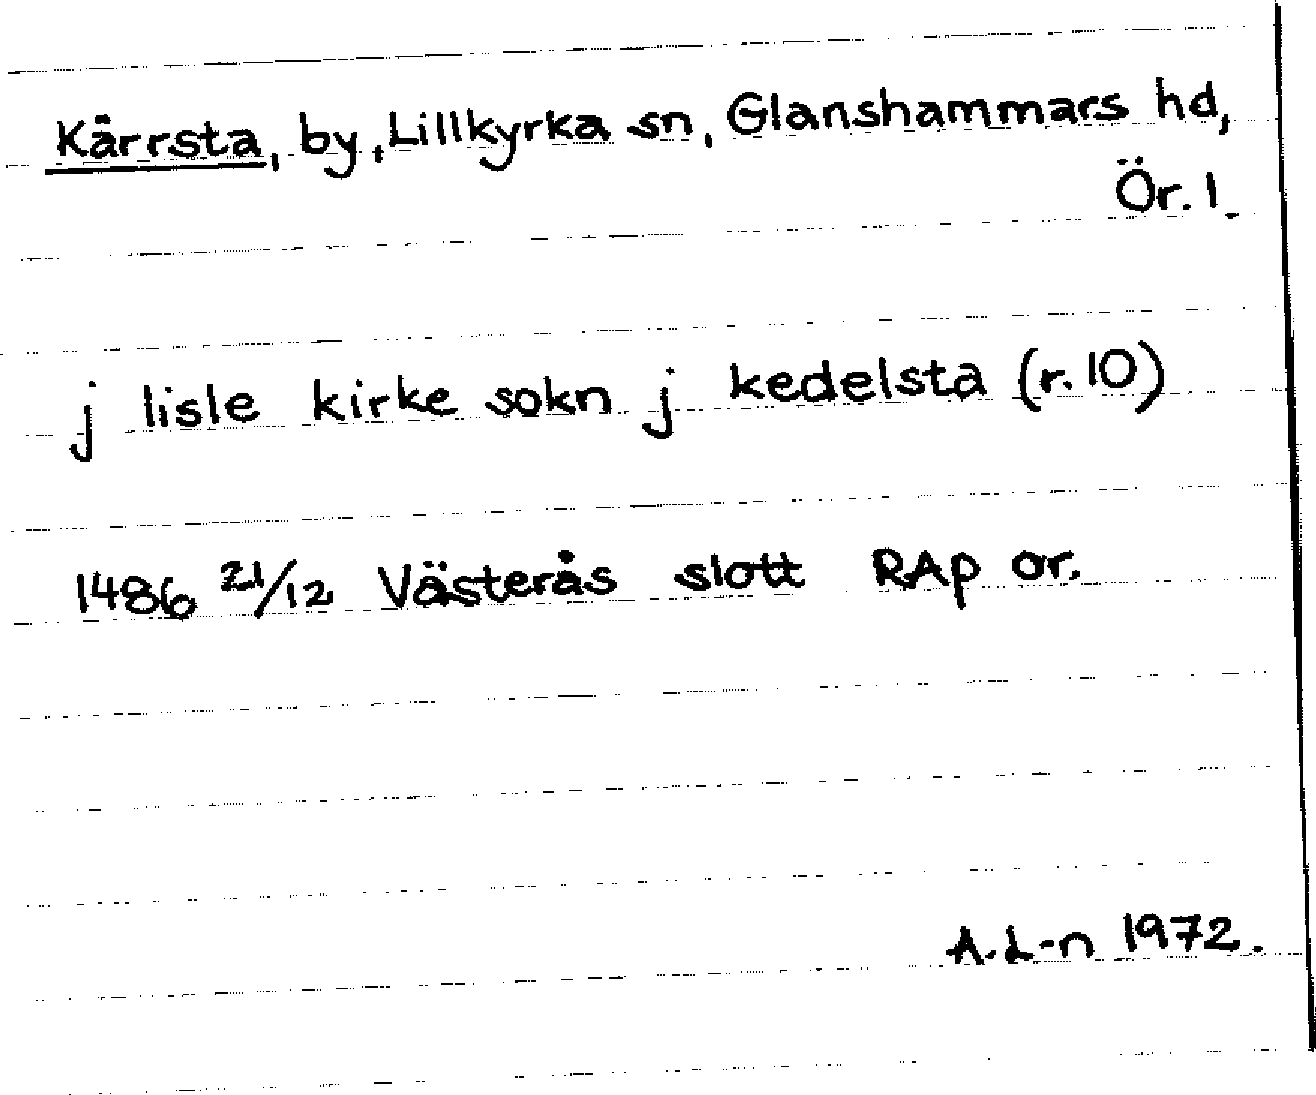 Kärrsta, by, Lillkyrka sn, Glanshammars hd,
Ör. l.
j lisle kirke sokn j kedelsta (r. 10)
1486 21/12 Västerås slott RAp or.
A. L-n 1972.